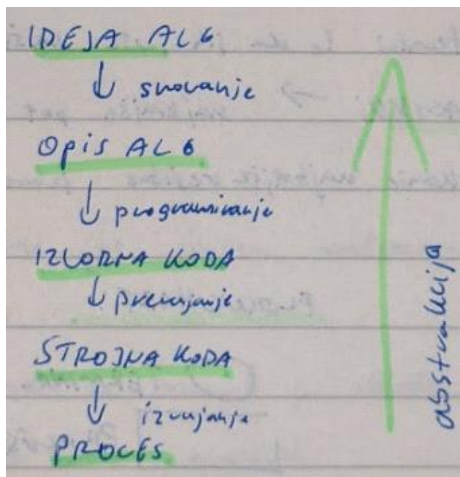 IDEJA ALG
↓ snovanje
OPIS ALG
↓ programiranje
IZVORNA KODA
↓ prevajanje
STROJNA KODA
↓ izvajanje
PROCES
abstrakcija